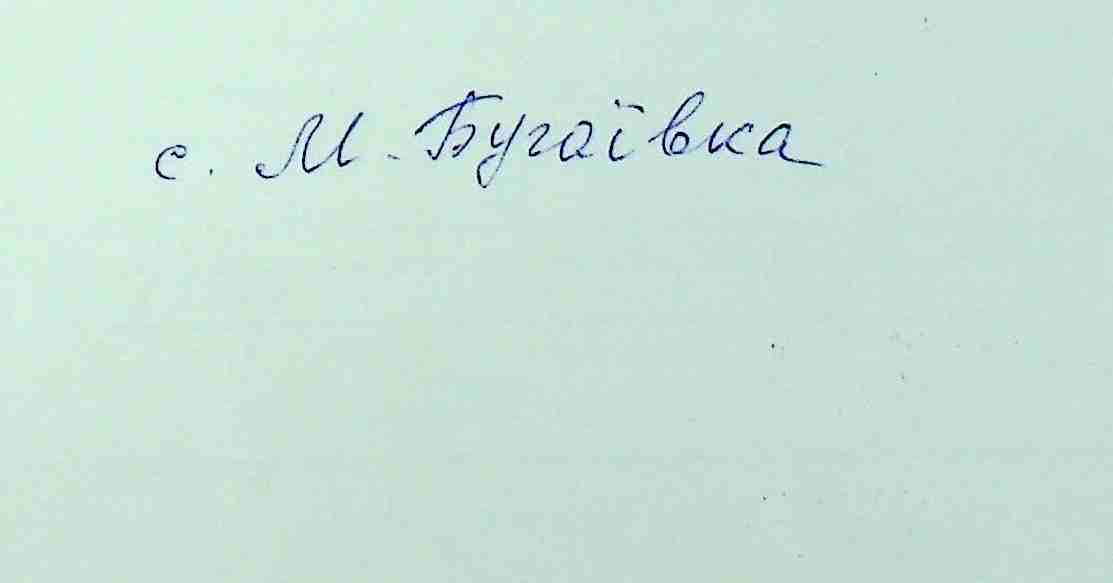 с. М-Бугаївка